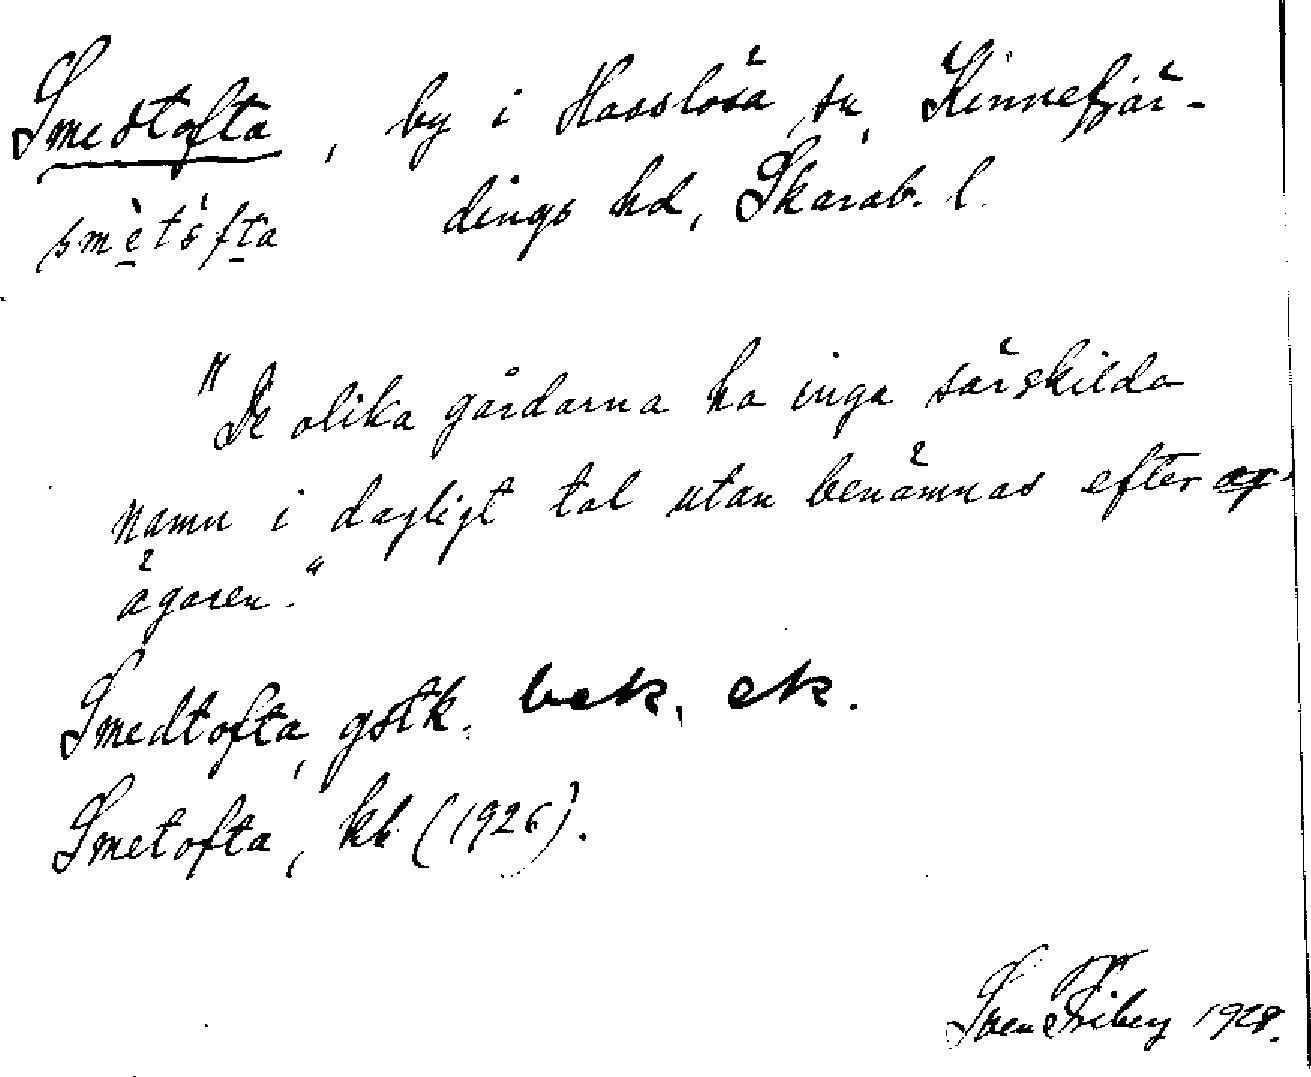 Smedtofta, by i Hasslösa sn, Kinnefjär-
smètófta dings hd, Skarab. l.
"De olika gårdarna ha inga särskilda
namn i dagligt tal utan benämnas efter
ägaren."
Smedtofta, gstk. bek, ek.
Smetofta, kb (1926).
Sven Friberg 1928.